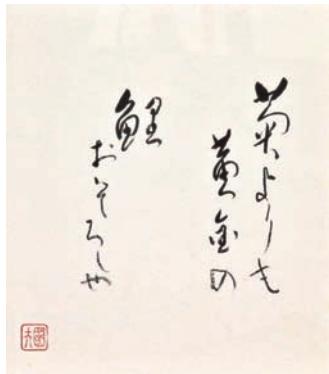 菊よりも
黄金の
鯉
おそろしや